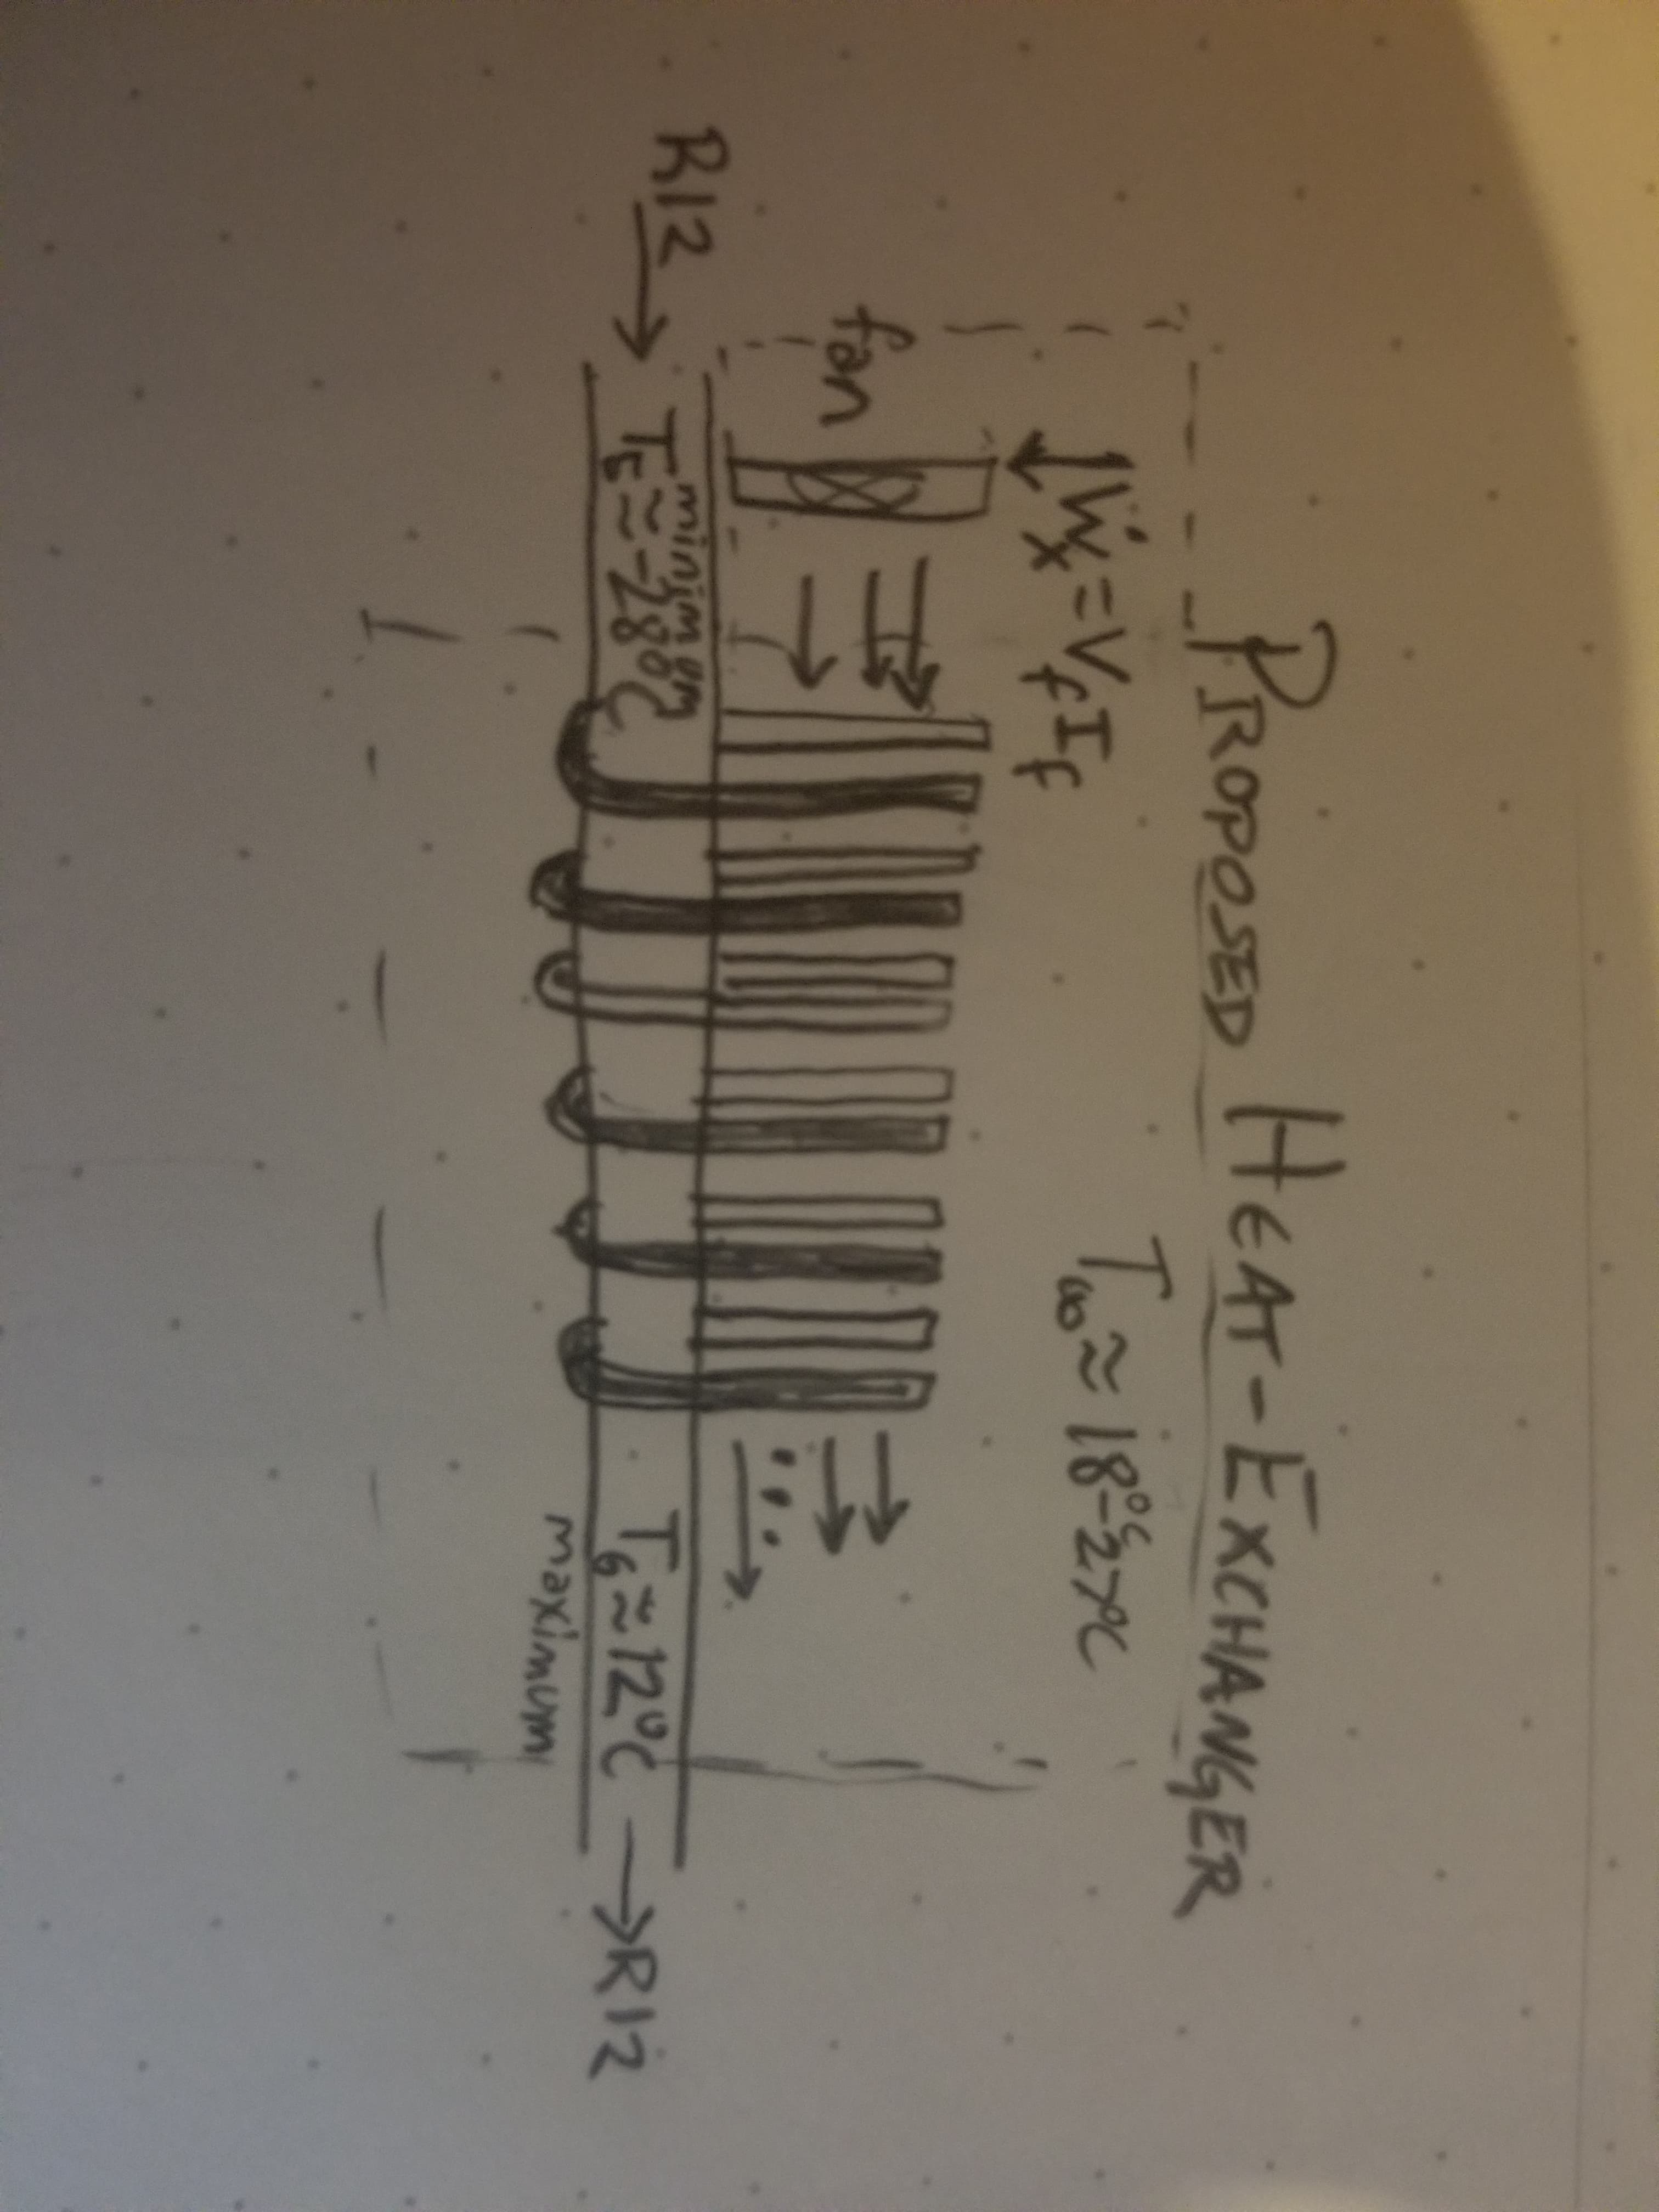 PROPOSED HEAT-EXCHANGER
Ẇx = VfIf
T∞ ≈ 18°C-27°C
fan
R12 →
minimum
T5 ≈ -28°C
T6 ≈ 12°C
maximum
→ R12